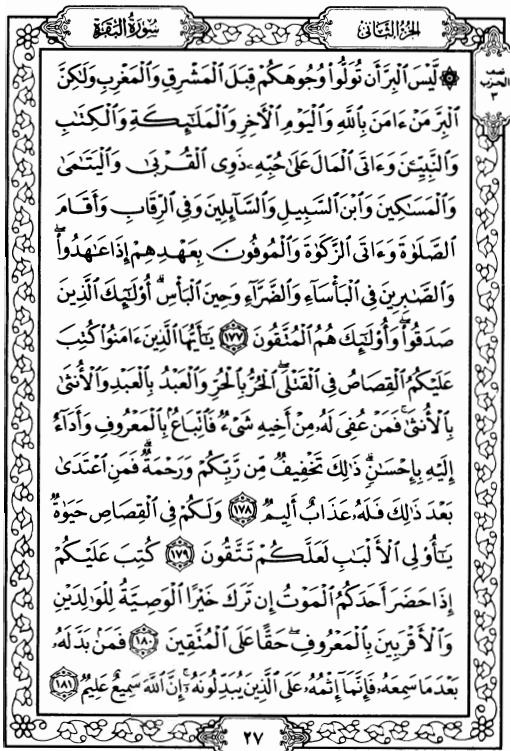 الجزء الثاني
سورة البقرة
نصف
الحزب
٣
۞ لَّيْسَ ٱلْبِرَّ أَن تُوَلُّوا۟ وُجُوهَكُمْ قِبَلَ ٱلْمَشْرِقِ وَٱلْمَغْرِبِ وَلَٰكِنَّ
ٱلْبِرَّ مَنْ ءَامَنَ بِٱللَّهِ وَٱلْيَوْمِ ٱلْءَاخِرِ وَٱلْمَلَٰٓئِكَةِ وَٱلْكِتَٰبِ
وَٱلنَّبِيِّـۧنَ وَءَاتَى ٱلْمَالَ عَلَىٰ حُبِّهِۦ ذَوِى ٱلْقُرْبَىٰ وَٱلْيَتَٰمَىٰ
وَٱلْمَسَٰكِينَ وَٱبْنَ ٱلسَّبِيلِ وَٱلسَّآئِلِينَ وَفِى ٱلرِّقَابِ وَأَقَامَ
ٱلصَّلَوٰةَ وَءَاتَى ٱلزَّكَوٰةَ وَٱلْمُوفُونَ بِعَهْدِهِمْ إِذَا عَٰهَدُوا۟ ۖ
وَٱلصَّٰبِرِينَ فِى ٱلْبَأْسَآءِ وَٱلضَّرَّآءِ وَحِينَ ٱلْبَأْسِ ۗ أُو۟لَٰٓئِكَ ٱلَّذِينَ
صَدَقُوا۟ ۖ وَأُو۟لَٰٓئِكَ هُمُ ٱلْمُتَّقُونَ ١٧٧ يَٰٓأَيُّهَا ٱلَّذِينَ ءَامَنُوا۟ كُتِبَ
عَلَيْكُمُ ٱلْقِصَاصُ فِى ٱلْقَتْلَى ۖ ٱلْحُرُّ بِٱلْحُرِّ وَٱلْعَبْدُ بِٱلْعَبْدِ وَٱلْأُنثَىٰ
بِٱلْأُنثَىٰ ۚ فَمَنْ عُفِىَ لَهُۥ مِنْ أَخِيهِ شَىْءٌ فَٱتِّبَاعٌۢ بِٱلْمَعْرُوفِ وَأَدَآءٌ
إِلَيْهِ بِإِحْسَٰنٍ ۗ ذَٰلِكَ تَخْفِيفٌ مِّن رَّبِّكُمْ وَرَحْمَةٌ ۗ فَمَنِ ٱعْتَدَىٰ
بَعْدَ ذَٰلِكَ فَلَهُۥ عَذَابٌ أَلِيمٌ ١٧٨ وَلَكُمْ فِى ٱلْقِصَاصِ حَيَوٰةٌ
يَٰٓأُو۟لِى ٱلْأَلْبَٰبِ لَعَلَّكُمْ تَتَّقُونَ ١٧٩ كُتِبَ عَلَيْكُمْ
إِذَا حَضَرَ أَحَدَكُمُ ٱلْمَوْتُ إِن تَرَكَ خَيْرًا ٱلْوَصِيَّةُ لِلْوَٰلِدَيْنِ
وَٱلْأَقْرَبِينَ بِٱلْمَعْرُوفِ ۖ حَقًّا عَلَى ٱلْمُتَّقِينَ ١٨٠ فَمَنۢ بَدَّلَهُۥ
بَعْدَ مَا سَمِعَهُۥ فَإِنَّمَآ إِثْمُهُۥ عَلَى ٱلَّذِينَ يُبَدِّلُونَهُۥٓ ۚ إِنَّ ٱللَّهَ سَمِيعٌ عَلِيمٌ ١٨١
٢٧